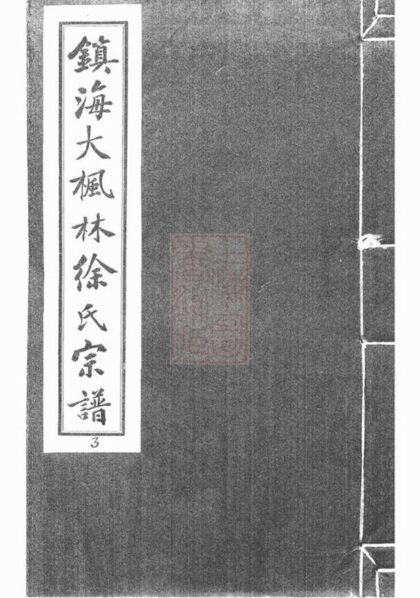 鎮海大楓林徐氏宗譜
3